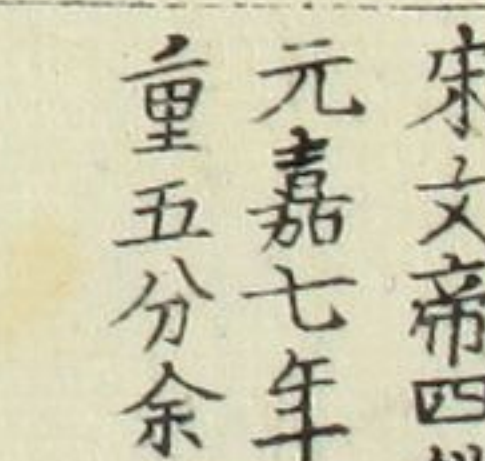 宋文帝四
元嘉七年
重五分余